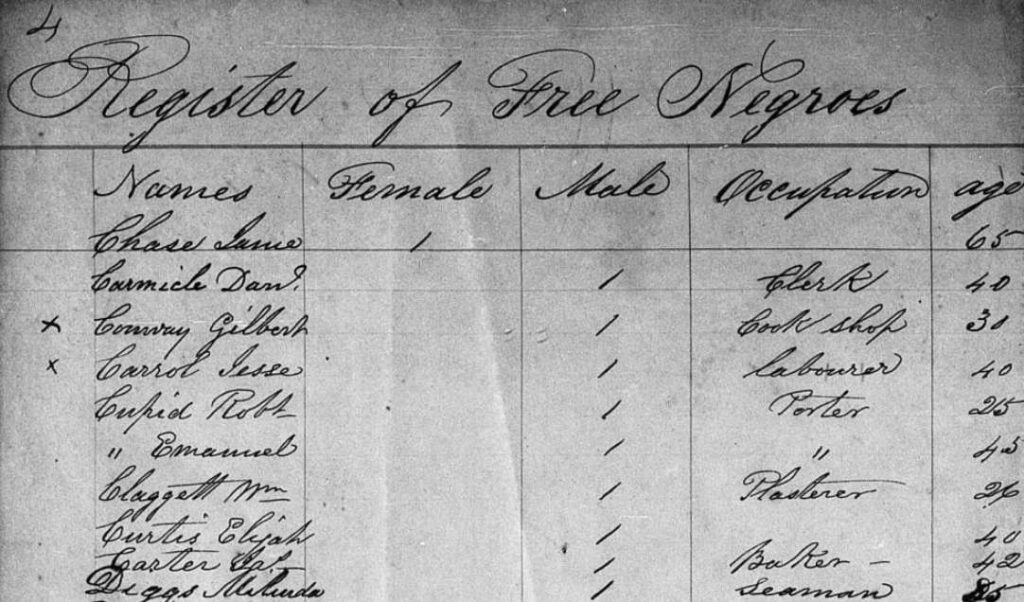 4
Register of Free Negroes
Names Female Male Occupation age
Chase Jane 1 65
Carmicle Danl. 1 Clerk 40
x Conway Gilbert 1 Cook shop 30
x Carrol Jesse 1 labourer 40
Cupid Robt 1 Porter 25
" Emanuel 1 " 45
Claggett Wm 1 Plasterer 26
Curtis Elijah 1 40
Carter 1 Baker - 42
Diggs Milinda 1 Seaman